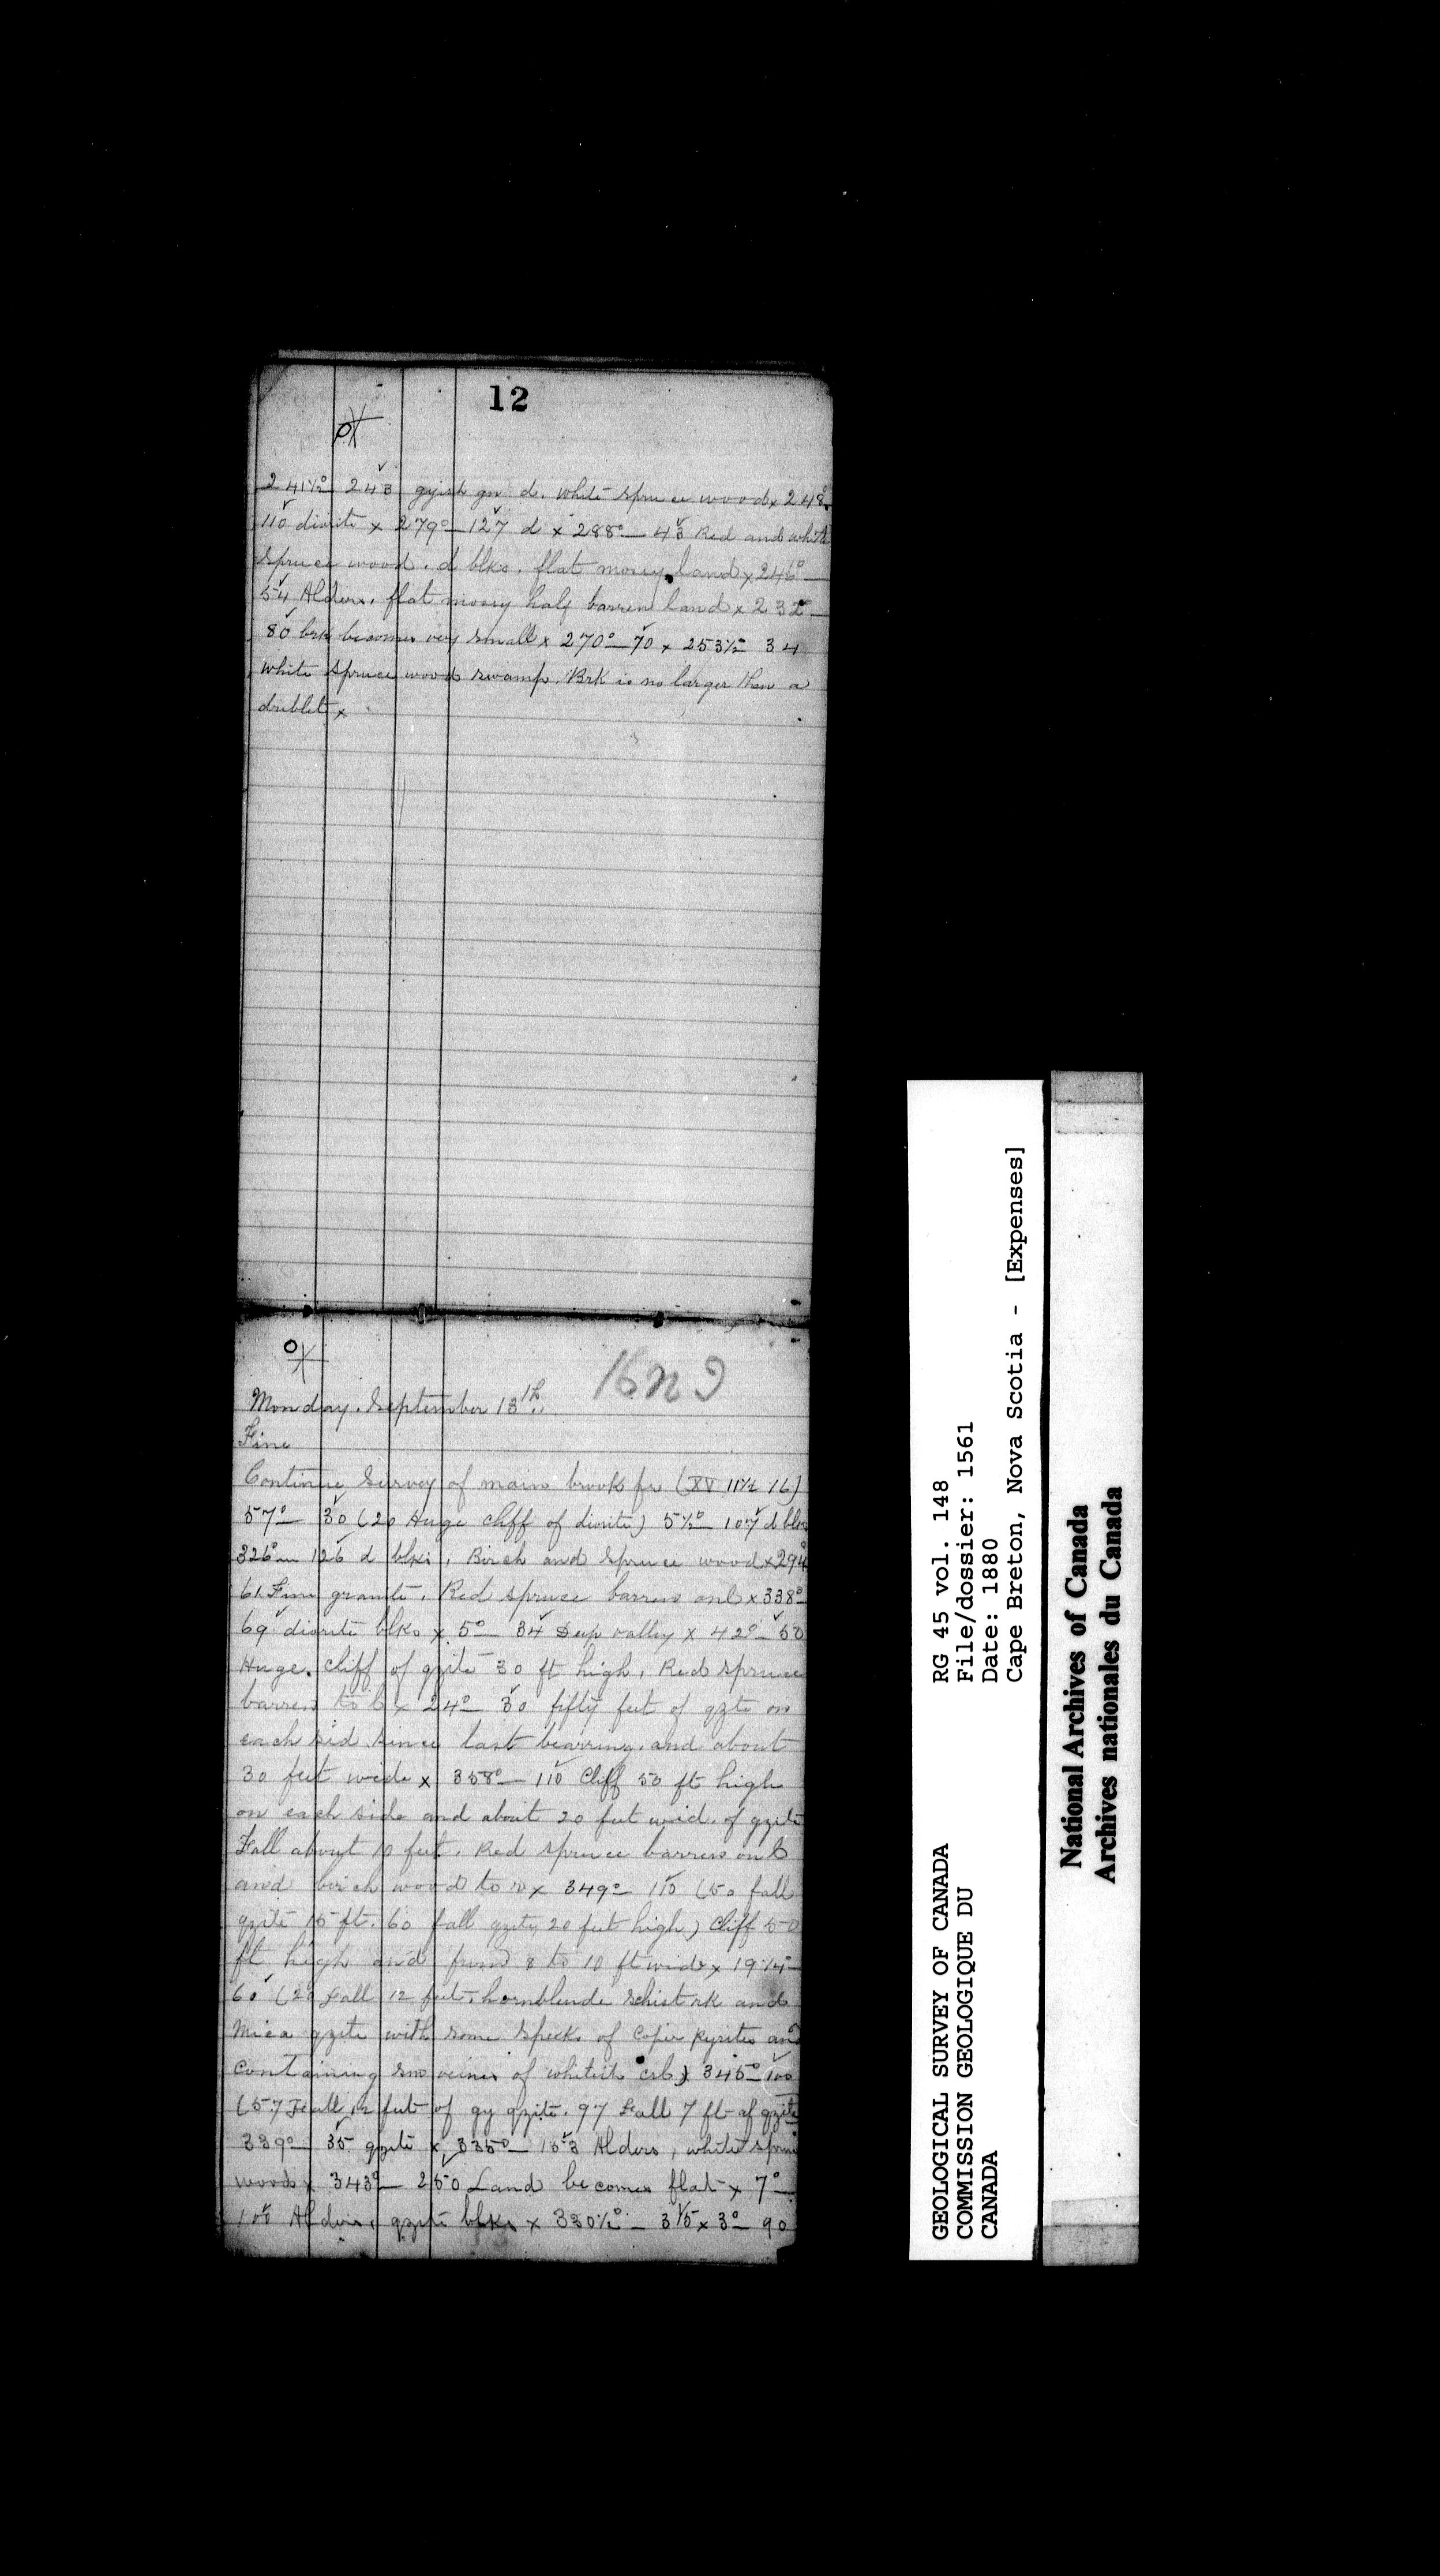 12
241½° 243 gyish gn d. white spruce wood x 248°
110 diorite x 279°— 127 d x 288°— 43 Red and white
spruce wood. d blks. flat mossy land x 246°—
54 Alders. flat mossy half barren land x 232°—
80 brk becomes very small x 270°— 70 x 253½— 34
white spruce wood swamp. Brk is no larger than a
driblet x
Monday. September 13th.
Fine
Continue Survey of main brook fr (XV 11½ 16)
57°— 30 (20 Huge cliff of diorite) 5½°— 107 d blks
326°— 126 d blks, Birch and Spruce wood x 294
61 Fine granite. Red spruce barren on l x 338°—
69 diorite blks x 5°— 34 Deep valley x 42°— 50
Huge cliff of qzite 30 ft high. Red spruce
barren to l x 24°— 30 fifty feet of qzte on
each sid since last bearing. and about
30 feet wide x 358°— 110 Cliff 50 ft high
on each side and about 20 feet wid. of qzite
Fall about 10 feet. Red spruce barren on l
and birch wood to r x 349°— 110 (50 fall
qzite 15 ft. 60 fall qzite 20 feet high) Cliff 50
ft high and from 8 to 10 ft wide x 19¼°—
60 (20 Fall 12 feet. hornblende schist rk and
Mica qzite with some specks of Copir pyrites and
containing smo veins of whitish crb) 345°— 100
(57 Fall 12 feet of gy qzite. 97 Fall 7 ft of qzite
339°— 35 qzite x 335°— 153 Alders, white spruce
wood x 343°— 250 Land becomes flat x 7°—
100 Alders. qzite blks x 330½°— 315 x 3°— 90
GEOLOGICAL SURVEY OF CANADA
COMMISSION GEOLOGIQUE DU
CANADA
RG 45 vol. 148
File/dossier: 1561
Date: 1880
Cape Breton, Nova Scotia - [Expenses]
National Archives of Canada
Archives nationales du Canada